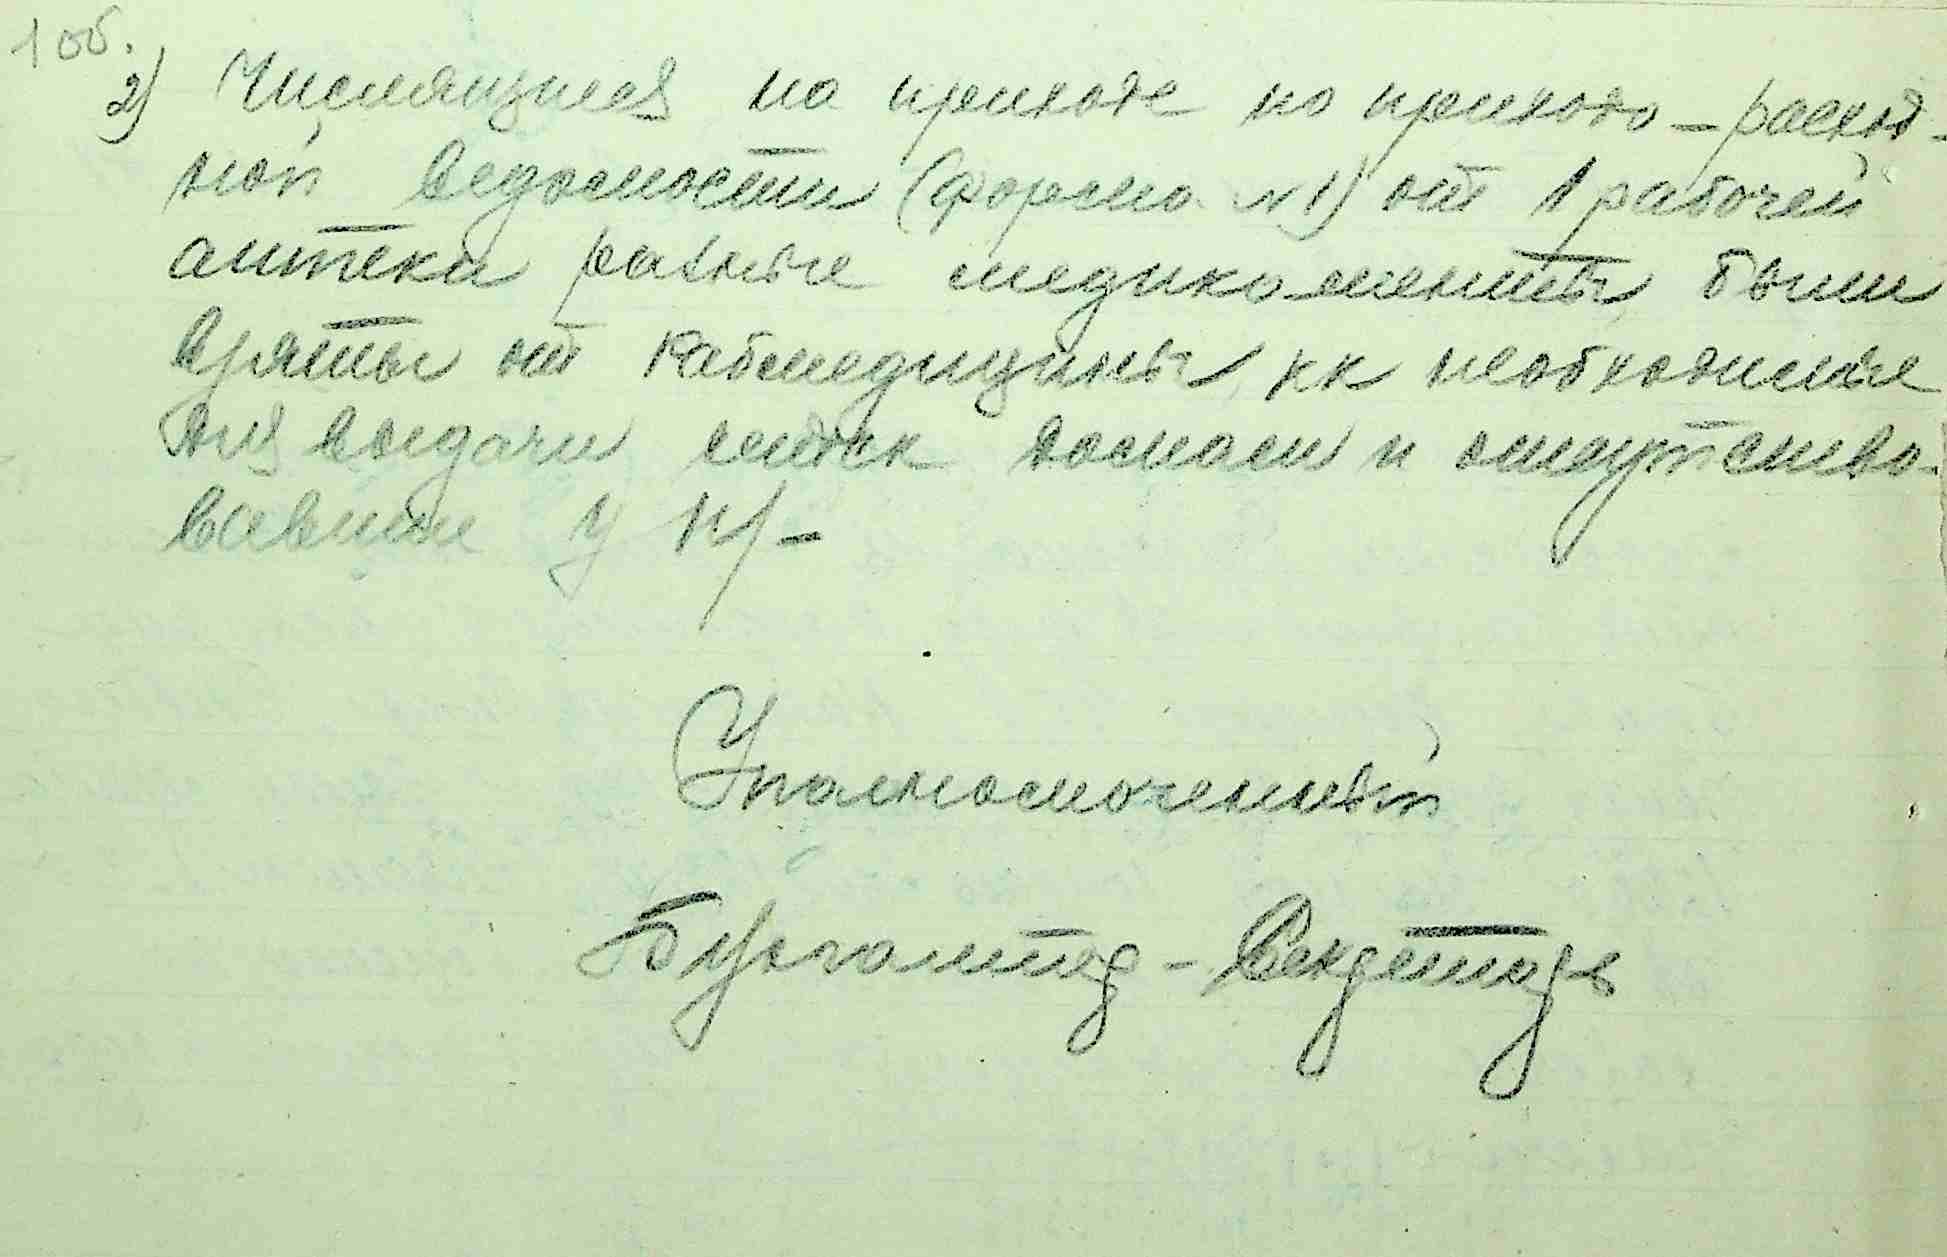 1 об.
2) Числящиеся на приходе по приходо-расход-
ной ведомости (форма №1) от 1 рабочей
аптеки разные медикаменты, были
взяты от Кабмедицины, кк необходимые
для выдачи домам и отсутство-
вавшие у н/-
Уполномоченный
Бухгалтер - Секретарь